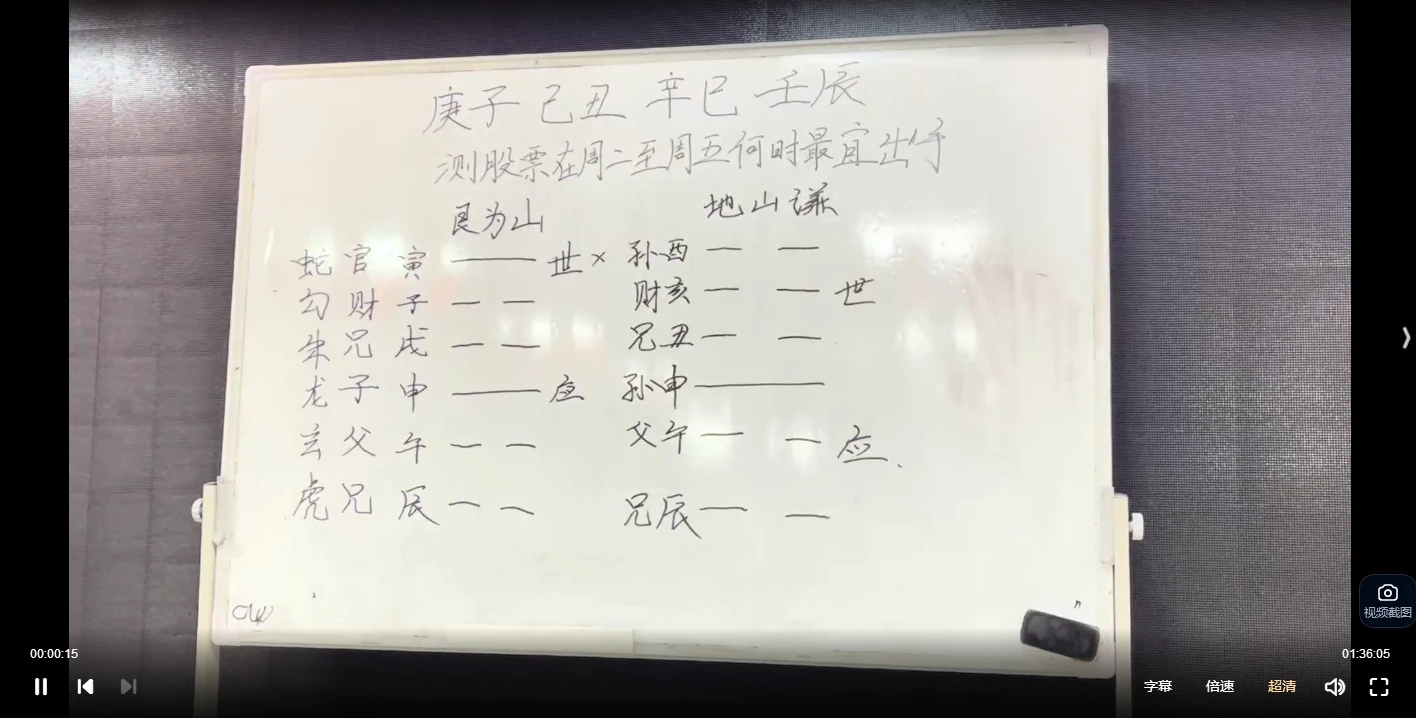 庚子 己丑 辛巳 壬辰
测股票在周二至周五何时最宜出行
艮为山 地山谦
蛇 官 寅 世 × 孙酉
勾 财 子 财亥 世
朱 兄 戌 兄丑
龙 子 申 应 孙申
玄 父 午 父午 应
虎 兄 辰 兄辰
视频截图
00:00:15 01:36:05
字幕 倍速 超清